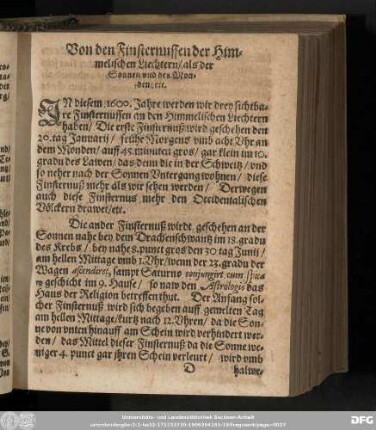 Von den Finsternussen der Him-
melischen Liechtern/ als der
Sonnen vnd des Mon-
den/ etc.
IN diesem 1600. Jahre werden wir drey sichtba-
re Finsternussen an den Himmelischen Liechtern
haben/ Die erste Finsternuß wird geschehen den
20. tag Januarij/ frühe Morgens vmb acht Vhr an
dem Monden/ auff 45. minuten gros/ gar klein im 10.
gradu des Lawen/ das denn die in der Schweitz/ vnd
so neher nach der Sonnen Vntergang wohnen/ diese
Finsternuß mehr als wir sehen werden/ Derwegen
auch diese Finsternus mehr den Occidentalischen
Völckern drawet/ etc.
Die ander Finsternuß wirdt geschehen an der
Sonnen nahe bey dem Drachenschwantz im 18. gradu
des Krebs/ bey nahe 8. punct gros den 30 tag Junij/
am hellen Mittage vmb 1. Vhr/ wenn der 23. gradu der
Wagen ascenderet, sampt Saturno conjungirt cum spica
geschicht im 9. Hause/ so naw den Astrologis das
Haus der Religion betreffen thut. Der Anfang sol-
cher Finsternuß wird sich begeben auff gemelten Tag
am hellen Mittage/ kurtz nach 12. Vhren/ da die Son-
ne von vnten hinauff am Schein wird verhindert wer-
den/ das Mittel dieser Finsternuß da die Sonne we-
niger 4. punct gar ihren Schein verleurt/ wird vmb
D
halwe-
Universitäts- und Landesbibliothek Sachsen-Anhalt
DFG